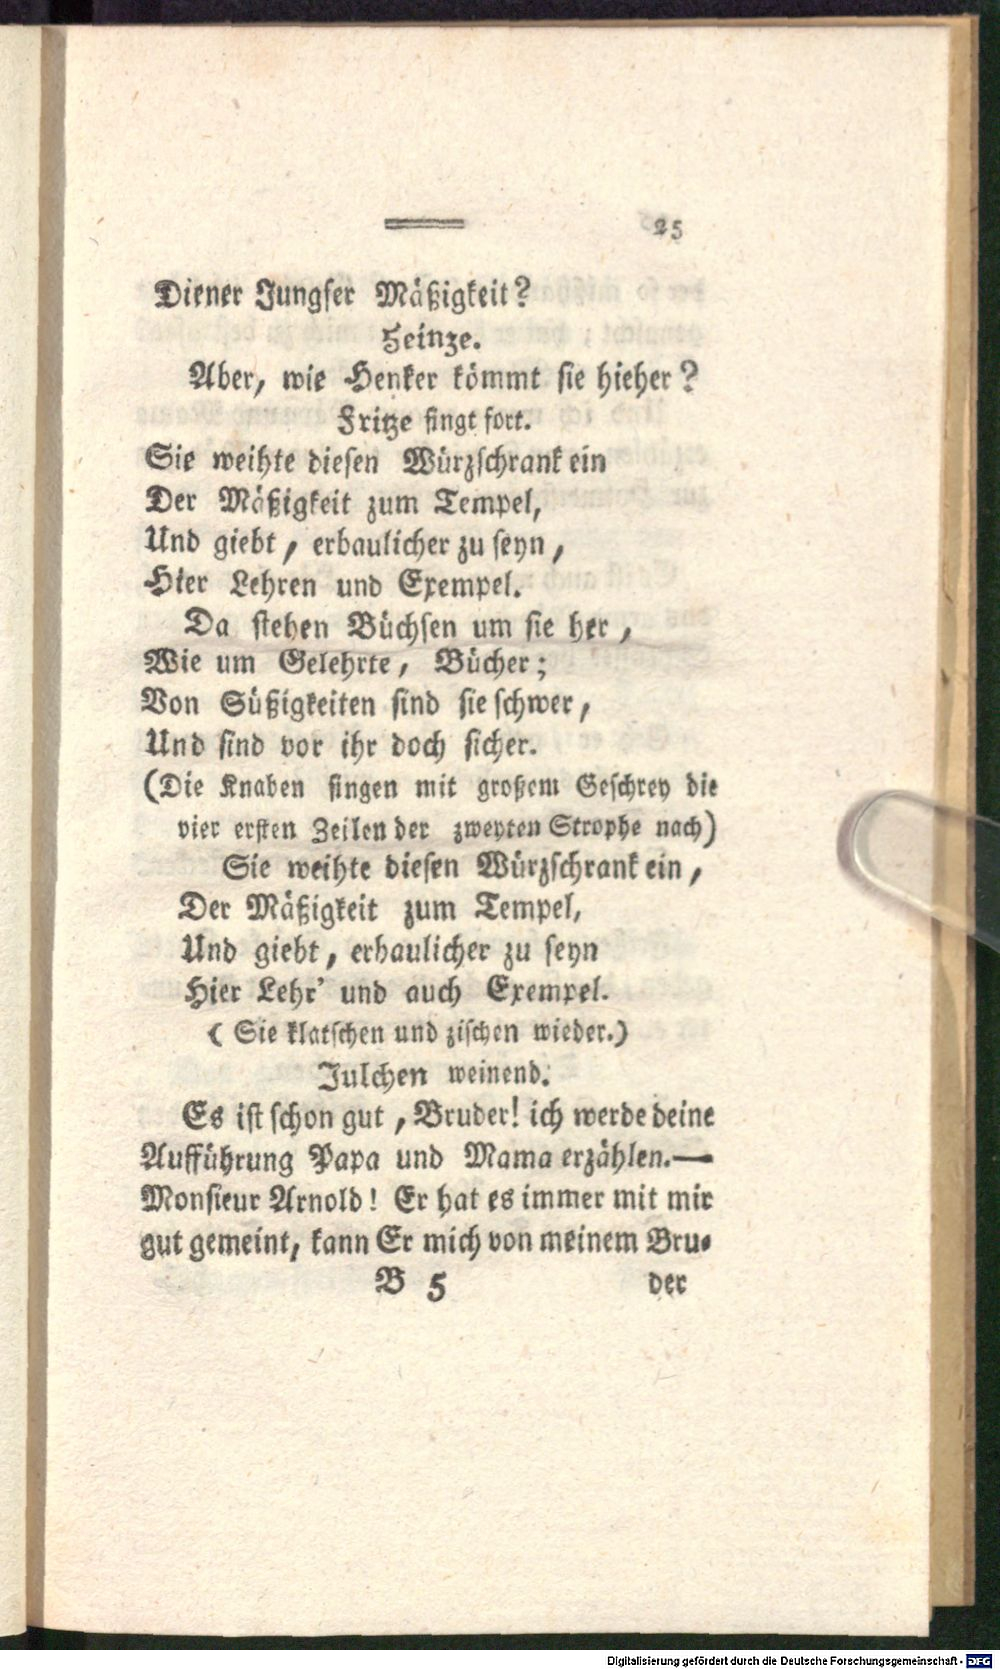 25
Diener Jungfer Mäßigkeit?
Heinze.
Aber, wie Henker kömmt sie hieher?
Fritze singt fort.
Sie weihte diesen Würzschrank ein
Der Mäßigkeit zum Tempel,
Und giebt, erbaulicher zu seyn,
Hier Lehren und Exempel.
Da stehen Büchsen um sie her,
Wie um Gelehrte, Bücher;
Von Süßigkeiten sind sie schwer,
Und sind vor ihr doch sicher.
(Die Knaben singen mit großem Geschrey die
vier ersten Zeilen der zweyten Strophe nach)
Sie weihte diesen Würzschrank ein,
Der Mäßigkeit zum Tempel,
Und giebt, erbaulicher zu seyn
Hier Lehr' und auch Exempel.
(Sie klatschen und zischen wieder.)
Julchen weinend.
Es ist schon gut, Bruder! ich werde deine
Aufführung Papa und Mama erzählen.—
Monsieur Arnold! Er hat es immer mit mir
gut gemeint, kann Er mich von meinem Bru-
B 5 der
Digitalisierung gefördert durch die Deutsche Forschungsgemeinschaft - DFG